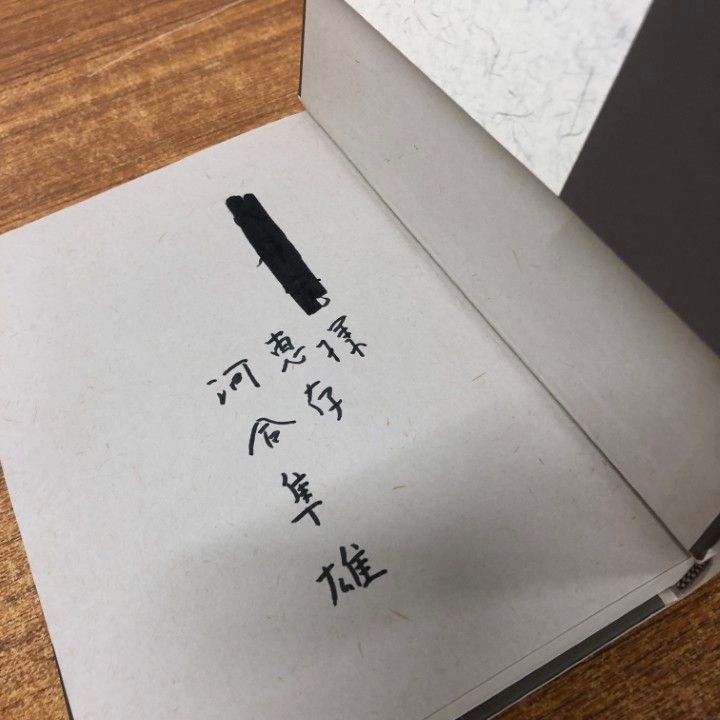 様
恵存
河合隼雄